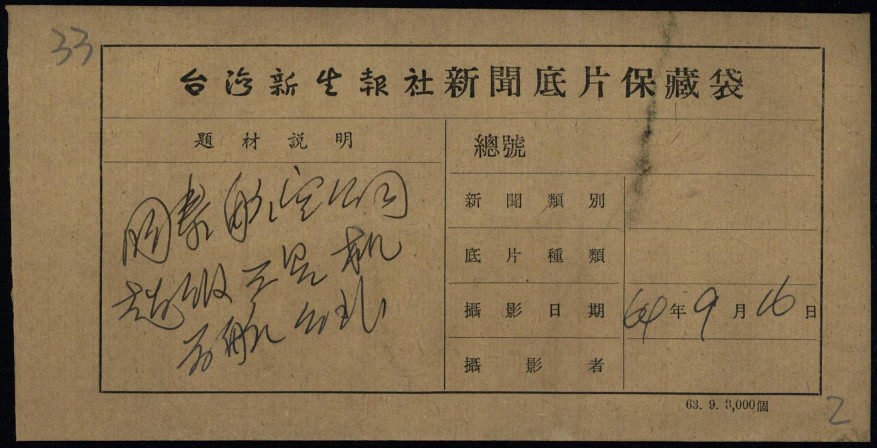 33
台灣新生報社新聞底片保藏袋
題材説明
国泰航空公司
超级三星机
首航台北
總號
新聞類別
底片種類
攝影日期 64年9月16日
攝影者
63. 9. 3,000個
2